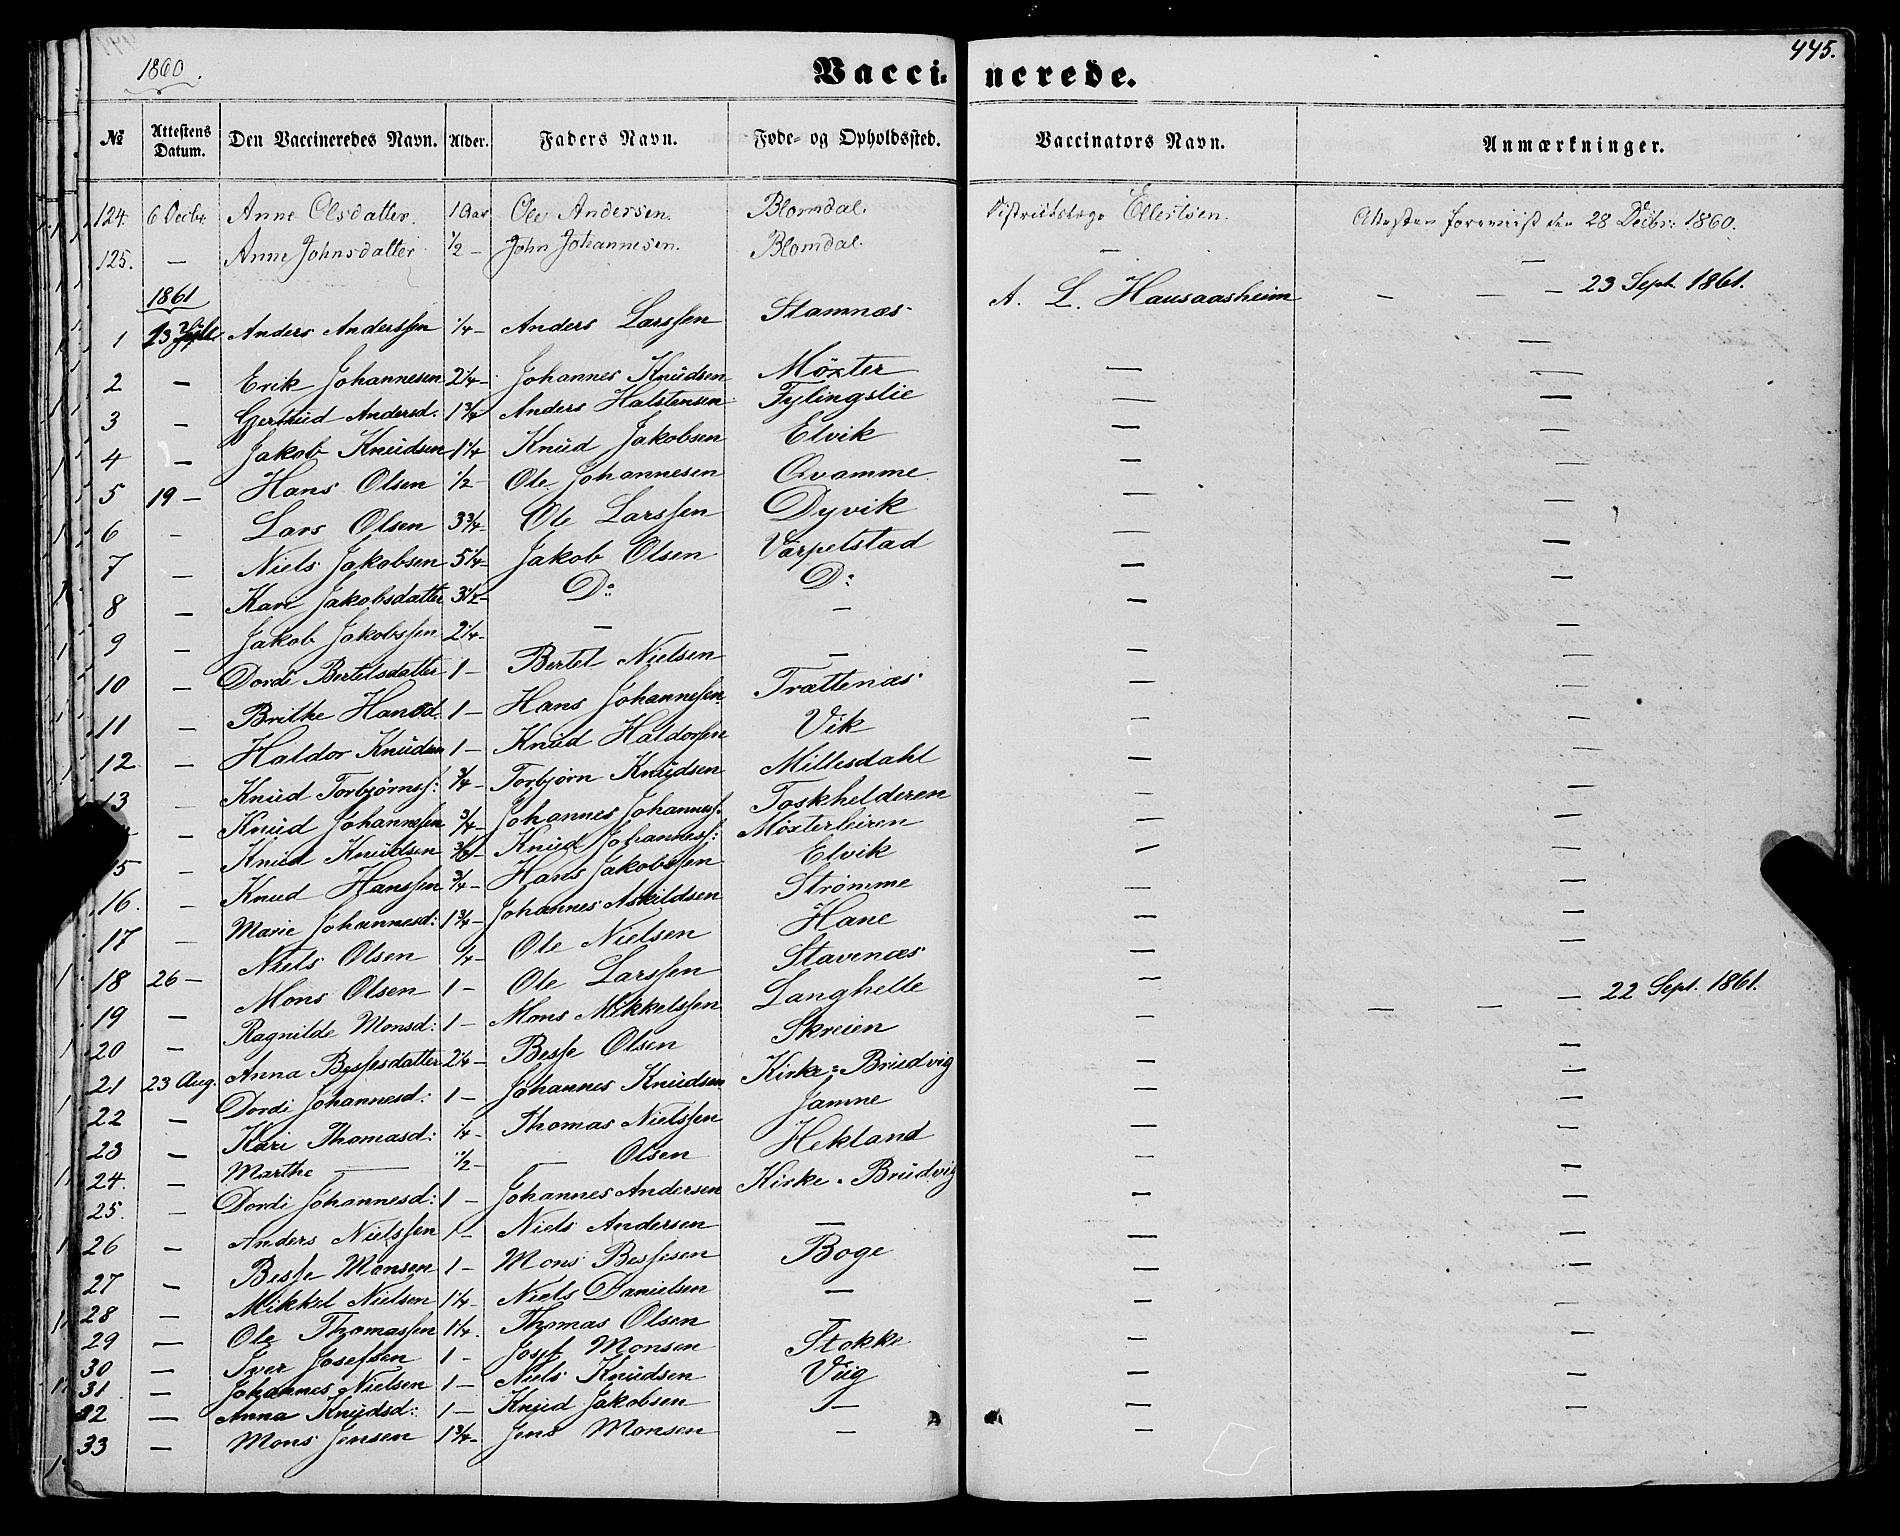 445.
1860.
Vaccinerede.
№ Attestens Datum. Den Vaccineredes Navn. Alder. Faders Navn. Føde- og Opholdssted. Vaccinators Navn. Anmærkninger.
124. 6 Decbr. Anne Olsdatter. 1 Aar Ole Andersen. Blomdal. Districtslæge Ellertsen. Attesten foreviist den 28 Decbr: 1860.
125. — Anne Johnsdatter ½ — John Johannesen. Blomdal. — —
1861
1 23 Anders Anderssen ¼ — Anders Larssen Stamnæs A. L. Hausaasheim — — — 23 Sept. 1861.
2 — Erik Johannesen 2¼ — Johannes Knüdsen Möxter — —
3 — Gertrüd Andersd. 1¾ Anders Halstensen Fylingslie — —
4 — Jakob Knüdsen 1¼ Knüd Jakobsen Elvik — —
5 19 — Hans Olsen ½ — Ole Johannesen Qvamme — —
6 — Lars Olsen 3¾ — Ole Larssen Dyvik — —
7 — Niels Jakobsen 5¼ — Jakob Olsen Varpelstad — —
8 — Kari Jakobsdatter 3½ — Do: Do: — —
9 — Jakob Jakobssen 2¼ — — — — —
10 — Dordi Bertelsdatter 1 — Bertel Nielsen — — —
11 — Brithe Hansd. 1 — Hans Johannessen Trættenæs — —
12 — Haldor Knüdsen 1 — Knüd Haldorsen Vik — —
13 — Knüd Torbjörns: ¾ — Torbjørn Knüdsen Millesdahl — —
— Knüd Johannessen ¾ — Johannes Johannes: Toskhelderen — —
15 — Knüd Knüdsen ¾ — Knüd Johannes: Möxterleiren — —
16. — Knud Hanssen ¾ — Hans Jakobssen Elvik — —
17 — Marie Johannesd: 1¾ — Johannes Askildsen Strømme — —
18 26 — Niels Olsen ¼ — Ole Nielsen Hane — —
19 — Mons Olsen 1 — Ole Larssen Stavenæs — — — — 22 Sept. 1861.
20 — Ragnilde Monsd: 1 — Mons Mikkelssen Langhelle — —
21 23 Aug. Anna Bessesdatter 2¼ — Besse Olsen Skreien — —
22 — Dordi Johannesd: 1 — Johannes Knüdsen Kirke=Brüdvig — —
23 — Kari Thomasd: ¼ — Thomas Nielssen Jamne — —
24. — Marthe — ½ — — Olsen Hekland — —
25. — Dordi Johannesd: 1 — Johannes Andersen Kirke=Brüdvig — —
26 — Anders Nielssen 1 — Niels Andersen — — —
27 — Besse Monsen 1 — Mons Bessesen Boge — —
28 — Mikkel Nielsen 1¼ — Niels Danielsen — — —
29 — Ole Thomassen 1¼. Thomas Olsen — — —
30 — Iver Josefsen 1 — Josef Monsen Stokke — —
31 — Johannes Nielsen 1 — Niels Knüdsen Viig — —
32 — Anna Knüdsd: 1 — Knüd Jakobsen — — —
33 — Mons Jensen 1¾ — Jens Monsen — —